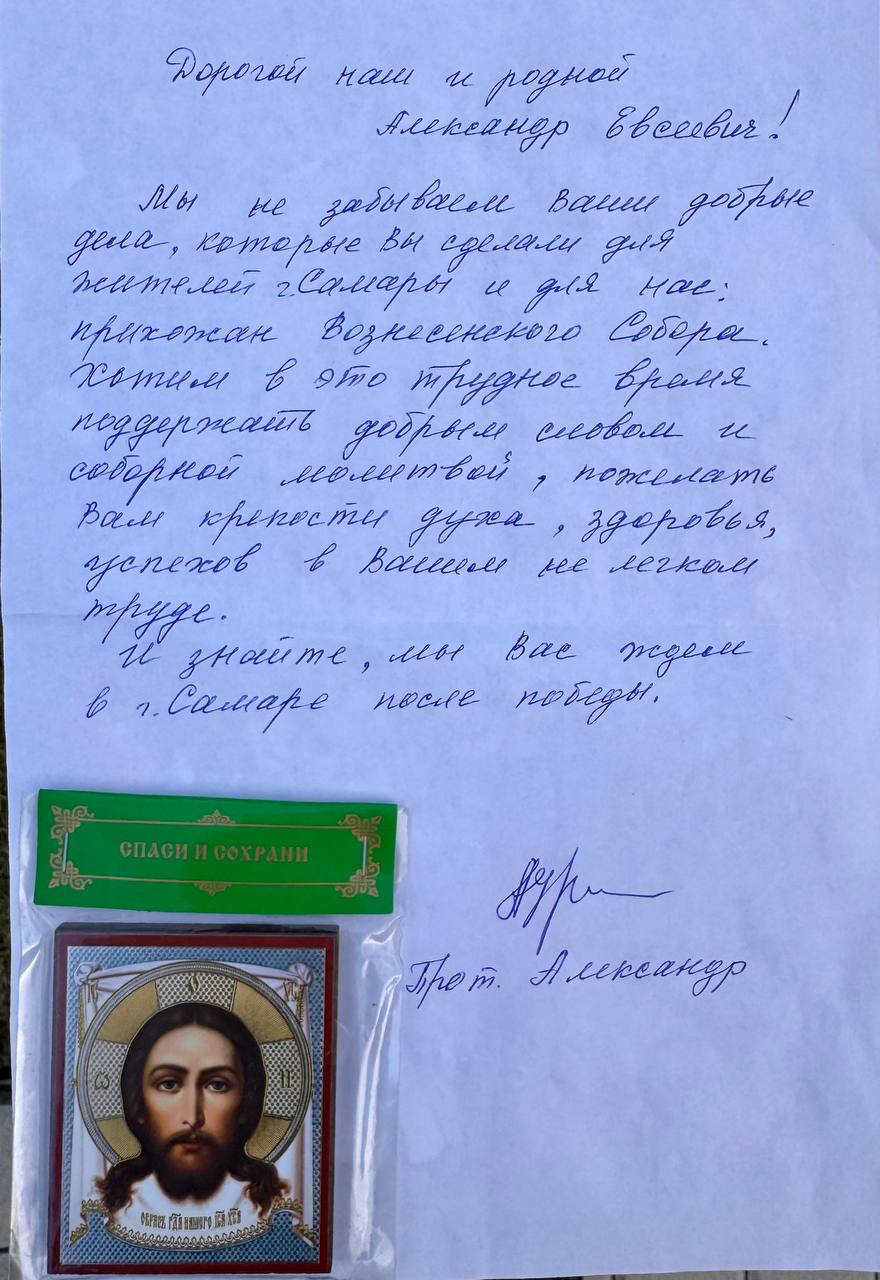 Дорогой наш и родной
Александр Евсеевич!
Мы не забываем Ваши добрые
дела, которые Вы сделали для
жителей г. Самары и для нас:
прихожан Вознесенского Собора.
Хотим в это трудное время
поддержать добрым словом и
соборной молитвой, пожелать
Вам крепости духа, здоровья,
успехов в Вашем не легком
труде.
И знайте, мы Вас ждем
в г. Самаре после победы.
СПАСИ И СОХРАНИ
Прот. Александр